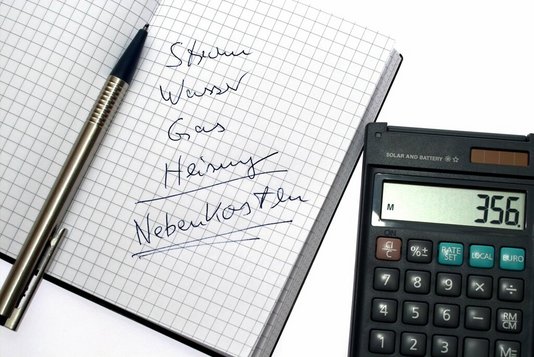 Strom
Wasser
Gas
Heizung
Nebenkosten
SOLAR AND BATTERY
M 356.
ON
CI/C %± RATE SET LOCAL EURO
7 8 9 × ÷
4 5 6 − RM/CM
1 2 3 + M=